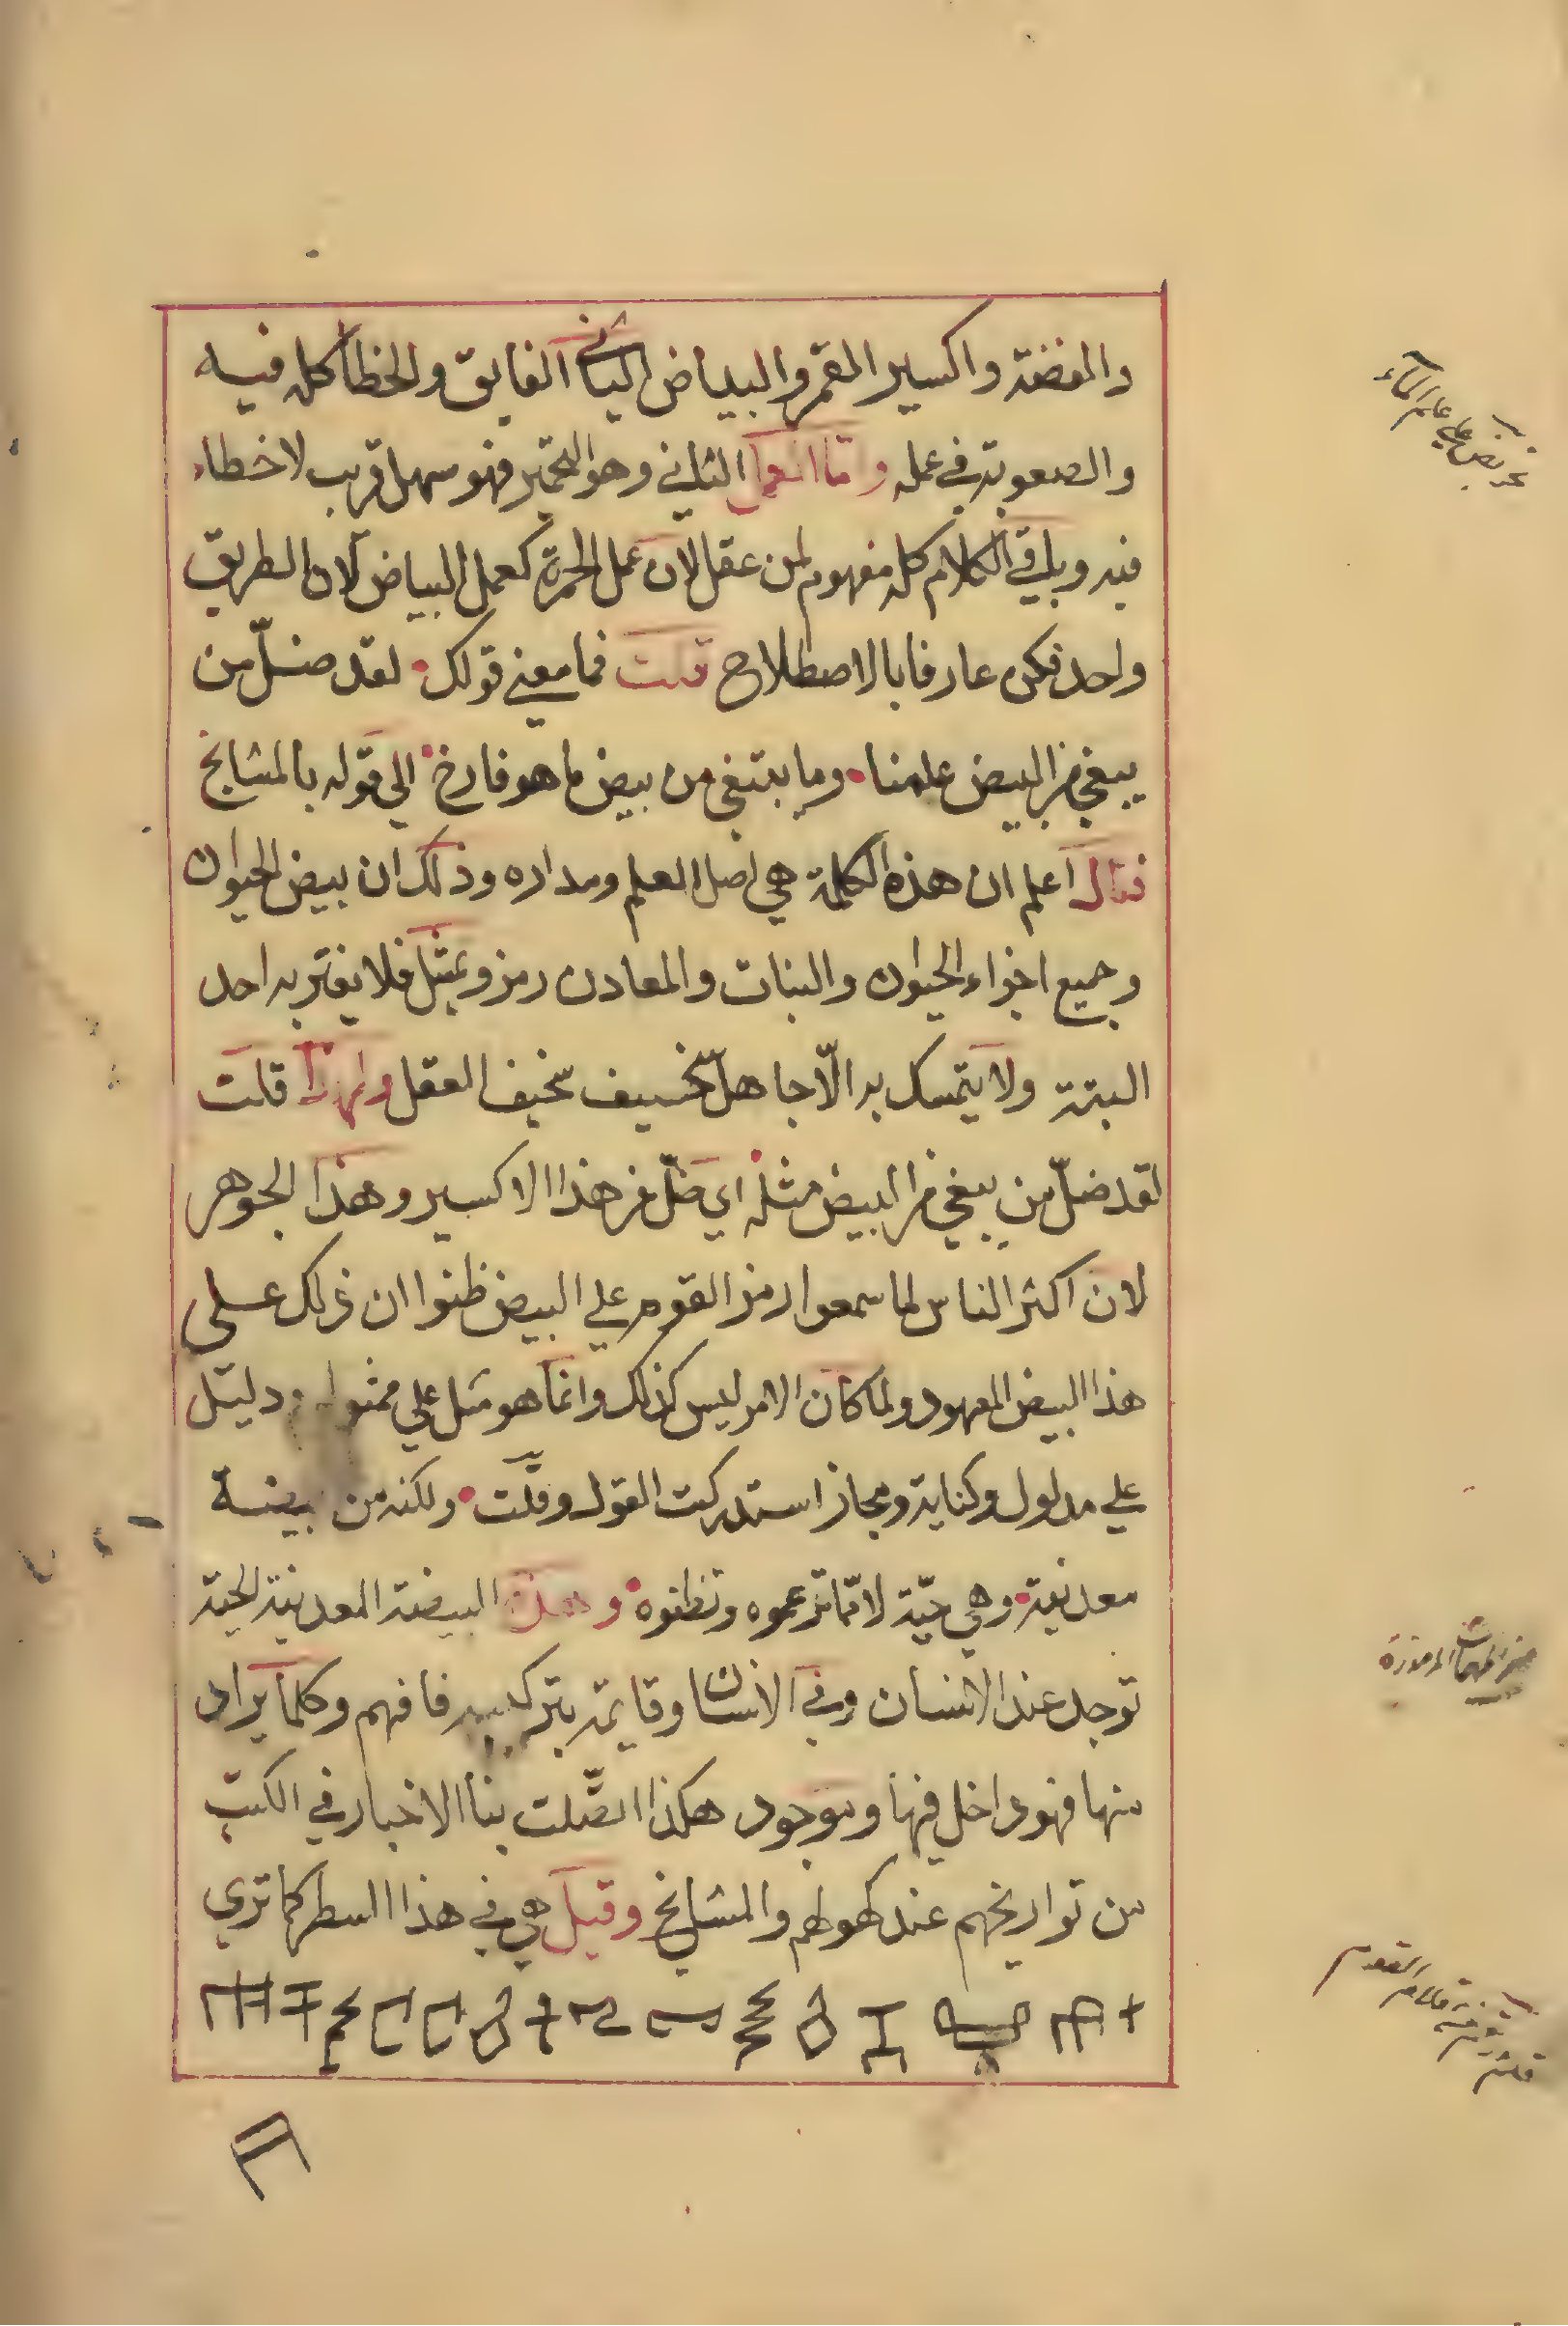 والفضة واكسير القمر والبياض الباني الفايق والخطا كله فيه
والصعوبة في عمله واما العمل الثاني وهو التخمير فهو سهل قريب لا خطاء
فيه وباقي الكلام كله مفهوم لمن عقل لان عمل الحمرة كعمل البياض لان الطريق
واحد فكن عارفا بالاصطلاح قلت فما معني قولك لقد ضلّ من
يبغي من البيض علمنا وما يبتغي من بيض ما هو فارخ الي قوله بالمشايخ
فقال اعلم ان هذه الكلمة هي اصل العلم ومداره وذلك ان بيض الحيوان
وجميع اجزاء الحيوان والنبات والمعادن رمز وتمثيل فلا يغتر به احد
البتة ولا يتمسك به الّا جاهل خسيف سخيف العقل ولهذا قلت
لقد ضلّ من يبغي من البيض مثله اي ضلّ عن هذا الاكسير وهذا الجوهر
لان اكثر الناس لما سمعوا رمز القوم علي البيض ظنوا ان ذلك على
هذا البيض المعهود ولما كان الامر ليس كذلك وانما هو مثل علي ممثول ودليل
علي مدلول وكناية ومجاز استدركت القول وقلت ولكنه من بيضة
معدنية وهي حيّة لا مّا تزعموه وتظنوه وهذه البيضة المعدنية الحية
توجد عند الانسان وفي الانسان وقايمة بتركيبه فافهم وكلما يراد
منها فهو داخل فيها وموجود هكذا اتصّلت بنا الاخبار في الكتب
من تواريخهم عند كهولهم والمشايخ وقيل هي في هذا السطر كما تري